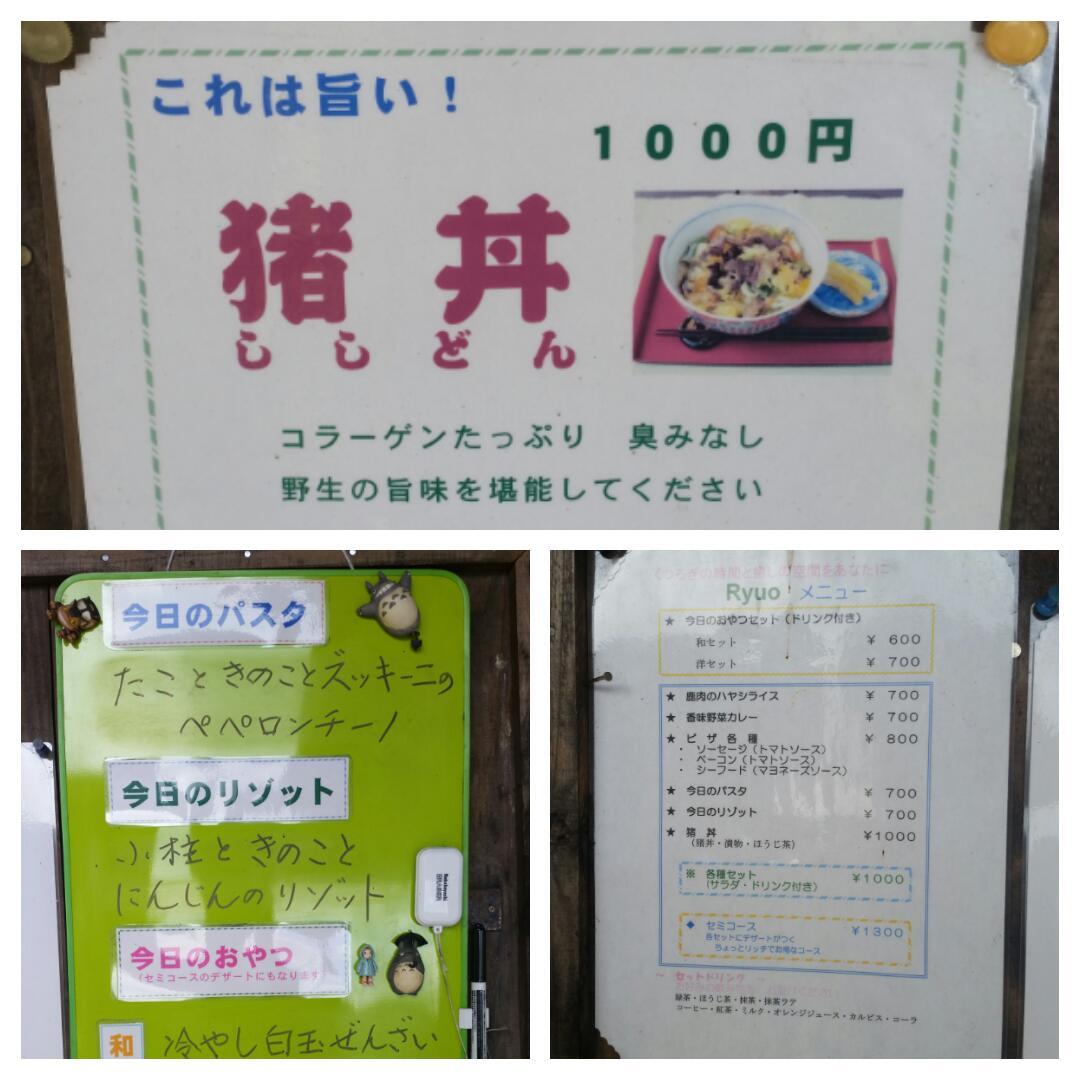 これは旨い！
1000円
猪丼
ししどん
コラーゲンたっぷり 臭みなし
野生の旨味を堪能してください
今日のパスタ
たこときのことズッキーニの
ペペロンチーノ
今日のリゾット
小柱ときのこと
にんじんのリゾット
今日のおやつ
（セミコースのデザートにもなります）
和 冷やし白玉ぜんざい
くつろぎの時間と癒しの空間をあなたに
Ryuo メニュー
★ 今日のおやつセット（ドリンク付き）
和セット ￥600
洋セット ￥700
★ 鹿肉のハヤシライス ￥700
★ 香味野菜カレー ￥700
★ ピザ各種 ￥800
・ソーセージ（トマトソース）
・ベーコン（トマトソース）
・シーフード（マヨネーズソース）
★ 今日のパスタ ￥700
★ 今日のリゾット ￥700
★ 猪丼 ￥1000
（猪丼・漬物・ほうじ茶）
※ 各種セット ￥1000
（サラダ・ドリンク付き）
◆ セミコース ￥1300
各セットにデザートがつく
ちょっとリッチでお得なコース
～ セットドリンク ～
緑茶・ほうじ茶・抹茶・抹茶ラテ
コーヒー・紅茶・ミルク・オレンジジュース・カルピス・コーラ